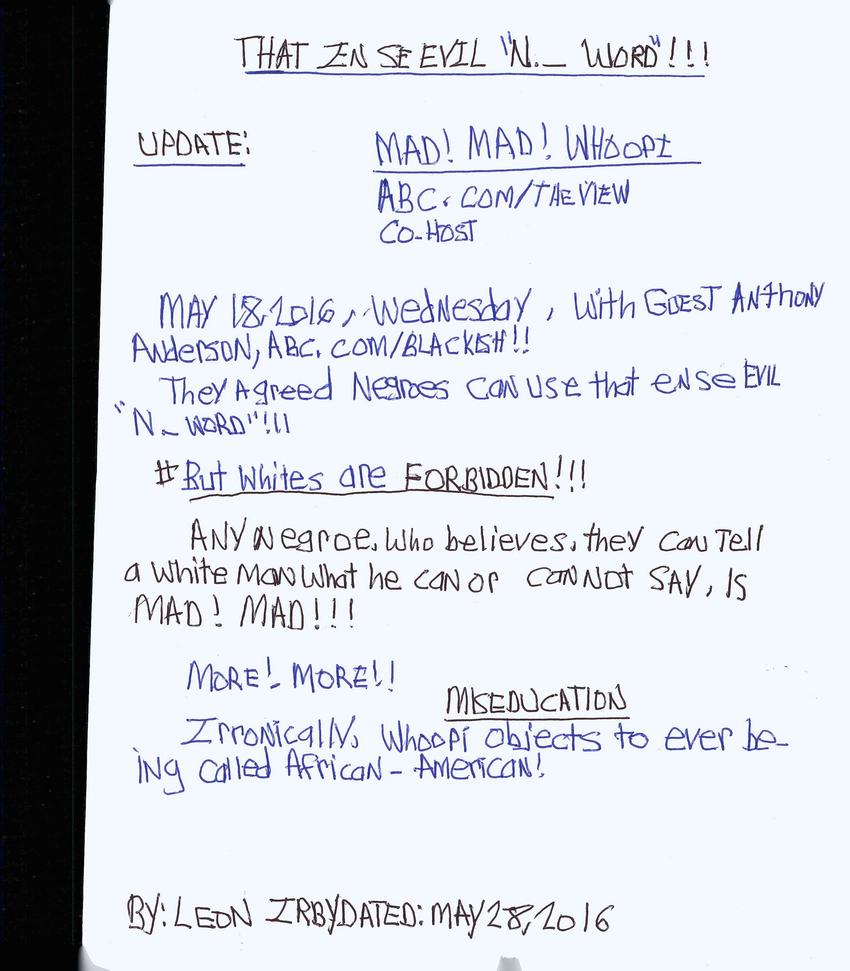 THAT EN SE EVIL "N._ WORD"!!!
UPDATE:
MAD! MAD! WHOOPI
ABC.COM/THEVIEW
CO-HOST
MAY 18,2016, Wednesday, With GUEST ANthoNy
ANdersoN, ABC.COM/BLACKISH!!
They Agreed Negroes CAN USE that EN Se EVIL
"N._ WORD"!!!
#But Whites are FORBIDDEN!!!
ANY Negroe, Who believes, they CAN Tell
a White MAN What he CAN OR CANNOT SAY, IS
MAD! MAD!!!
MORE! MORE!!
MISEDUCATION
IrroNically, Whoopi Objects to ever be-
iNg called AfricaN-AmericaN!
BY: LEON IRBY DATED: MAY 28,2016